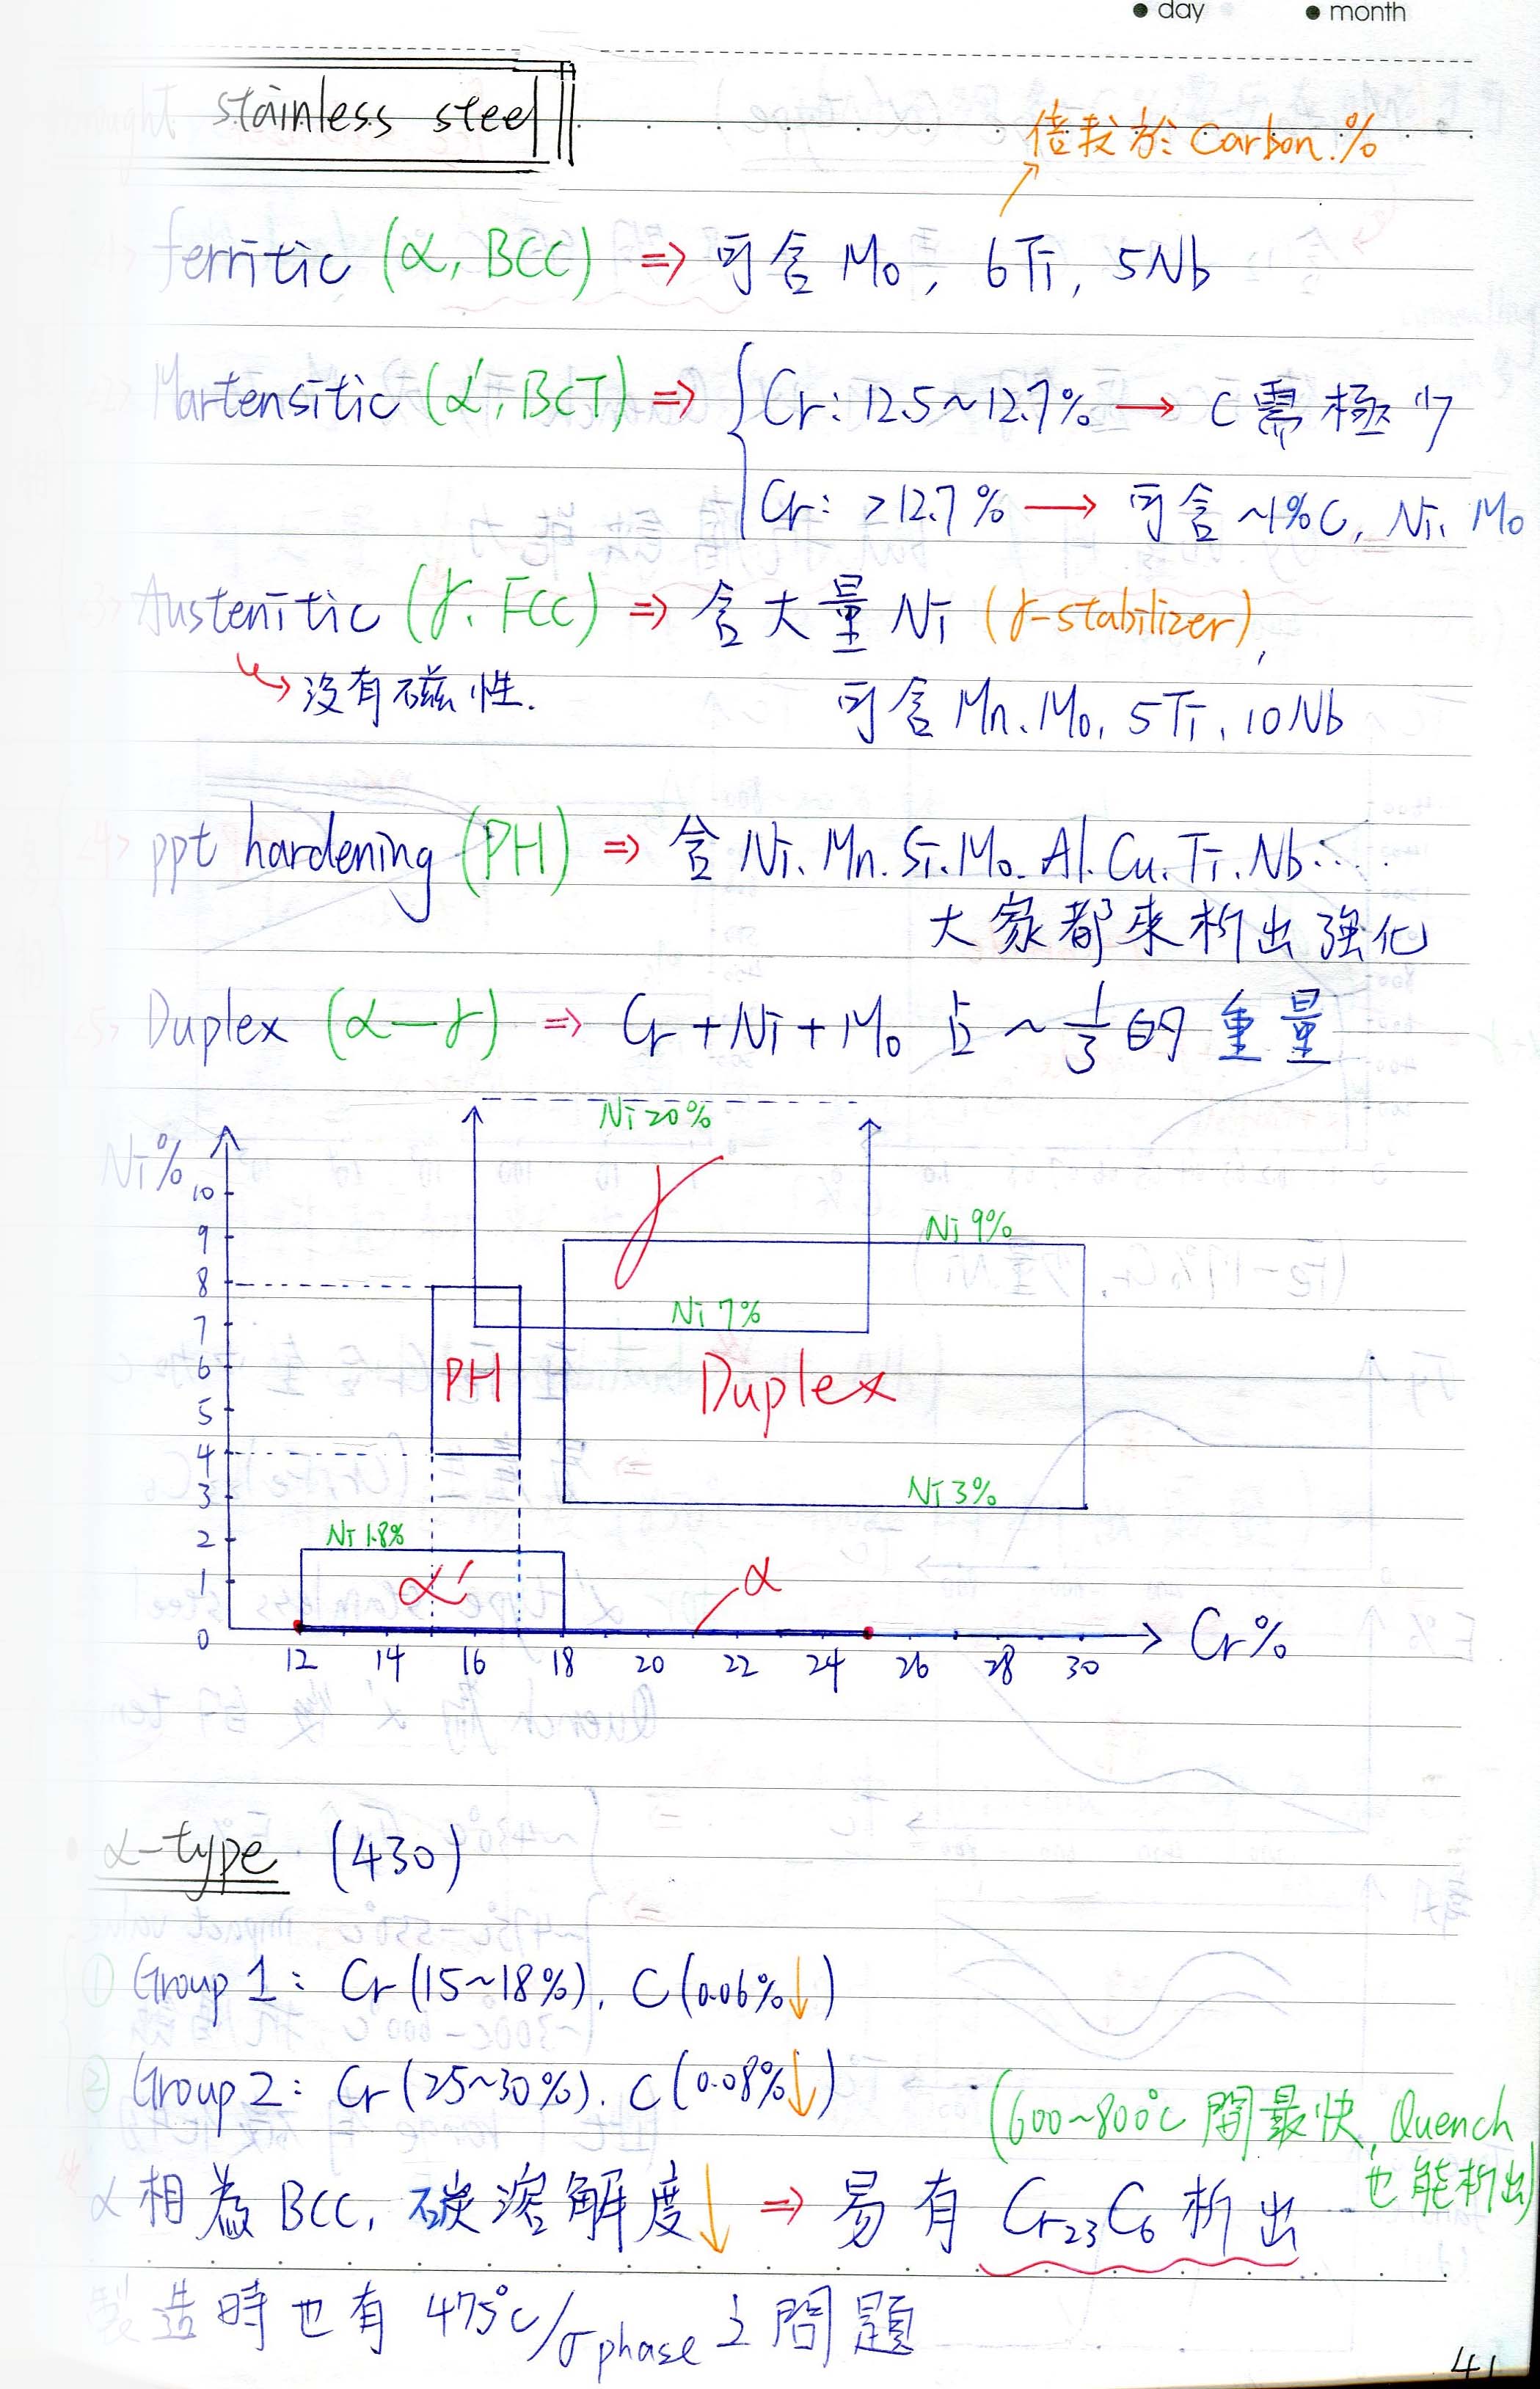 ● day ● month
stainless steel
倍數於 Carbon.%
ferritic (α, BCC) ⇒ 可含 Mo, 6Ti, 5Nb
Martensitic (α', BCT) ⇒ Cr: 12.5~12.7% → C需極少
Cr: >12.7% → 可含 ~1%C, Ni, Mo
3> Austenitic (γ, FCC) ⇒ 含大量 Ni (γ-stabilizer),
↳ 沒有磁性. 可含 Mn. Mo, 5Ti, 10Nb
4> ppt hardening (PH) ⇒ 含 Ni. Mn. Si. Mo. Al. Cu. Ti. Nb...
大家都來析出強化
5> Duplex (α-γ) ⇒ Cr + Ni + Mo 占 ~ 1/3 的重量
Ni 20%
Ni%
10
γ
9
Ni 9%
8
7
Ni 7%
6
PH
Duplex
5
4
3
Ni 3%
2
Ni 1.8%
1
α'
α
0
12 14 16 18 20 22 24 26 28 30
Cr%
α-type (430)
① Group 1: Cr (15~18%), C (0.06%↓)
② Group 2: Cr (25~30%). C (0.08%↓)
(600~800°C 間最快, Quench
也能析出)
α相為 BCC, 碳溶解度↓ ⇒ 易有 Cr23C6 析出
製造時也有 475°C/σ phase 之問題
41